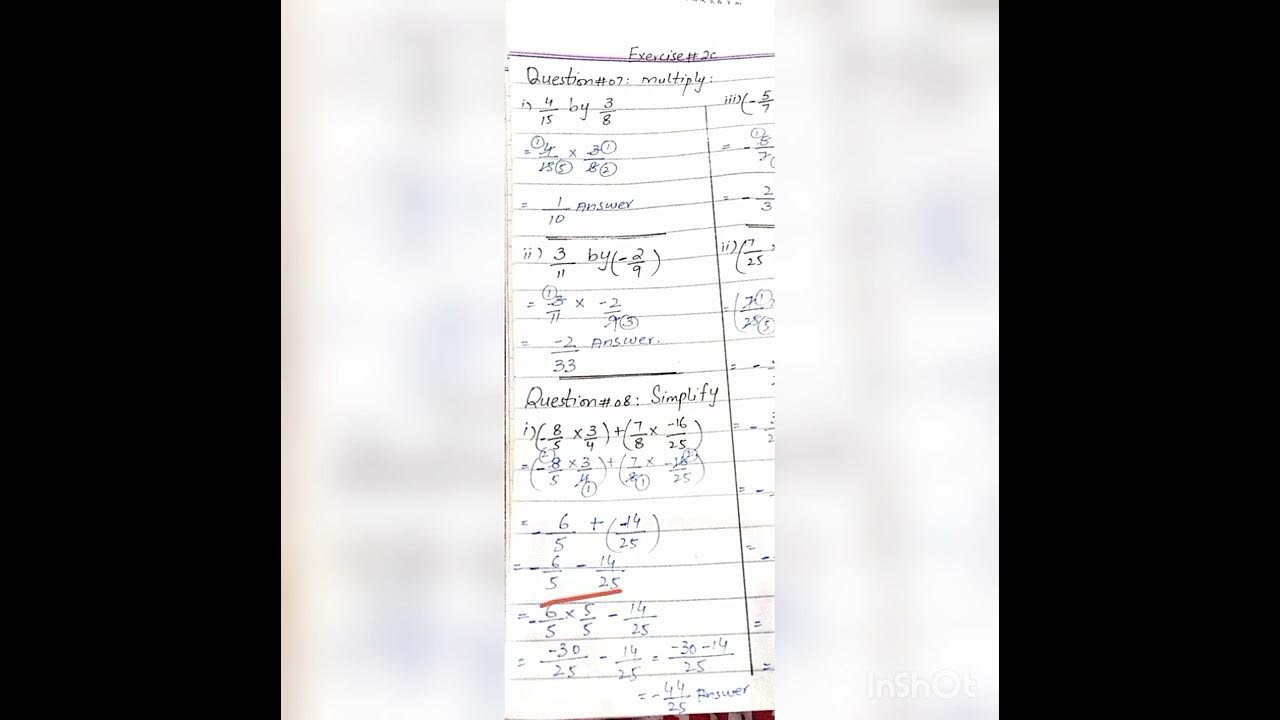 Exercise# 2c
Question#07: multiply:
i) 4/15 by 3/8
= ①4/15⑤ × 3①/8②
= 1/10 Answer
ii) 3/11 by (-2/9)
= ①3/11 × -2/9③
= -2/33 Answer.
Question#08: Simplify
i) (-8/5 × 3/4) + (7/8 × -16/25)
= (-②8/5 × 3/4①) + (7/8① × -16②/25)
= -6/5 + (-14/25)
= -6/5 - 14/25
= -6/5 × 5/5 - 14/25
= -30/25 - 14/25 = -30-14/25
= -44/25 Answer
iii) (-5/7
= -①5/7
= -2/3
ii) (7/25
= (7①/25⑤
= -
= -
= -
= -
=
=
InShOt